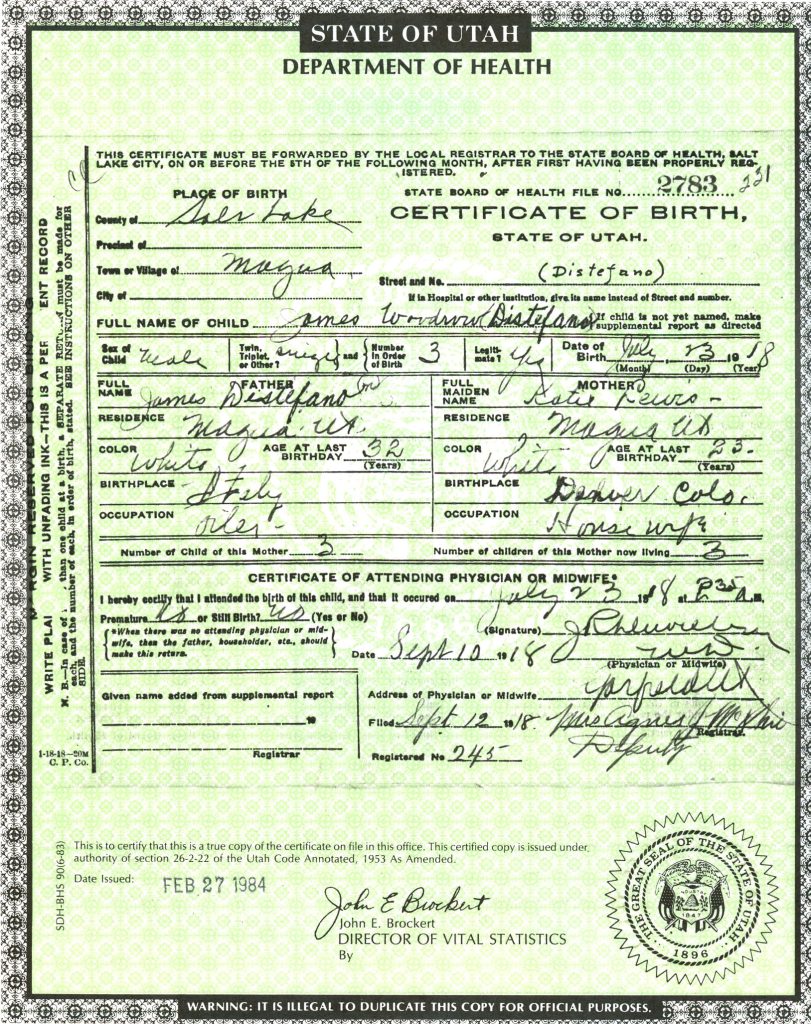 STATE OF UTAH
DEPARTMENT OF HEALTH
THIS CERTIFICATE MUST BE FORWARDED BY THE LOCAL REGISTRAR TO THE STATE BOARD OF HEALTH, SALT
LAKE CITY, ON OR BEFORE THE 5TH OF THE FOLLOWING MONTH, AFTER FIRST HAVING BEEN PROPERLY REG-
ISTERED.
PLACE OF BIRTH
STATE BOARD OF HEALTH FILE NO. 2783 221
County of Salt Lake
CERTIFICATE OF BIRTH,
STATE OF UTAH.
Precinct of
Town or Village of Magna
Street and No. (Distefano)
City of
If in Hospital or other institution, give its name instead of Street and number.
FULL NAME OF CHILD James Woodrow Distefano
If child is not yet named, make
supplemental report as directed
Sex of Child Male
Twin, Triplet, or Other? Single and Number in Order of Birth 3
Legiti-mate? Yes
Date of Birth July 23 1918
(Month) (Day) (Year)
FULL NAME FATHER James Distefano
FULL MAIDEN NAME MOTHER Katie Lewis
RESIDENCE Magna Ut
RESIDENCE Magna Ut
COLOR White AGE AT LAST BIRTHDAY 32 (Years)
COLOR White AGE AT LAST BIRTHDAY 23 (Years)
BIRTHPLACE Italy
BIRTHPLACE Denver Colo.
OCCUPATION Oiler
OCCUPATION House wife
Number of Child of this Mother 3
Number of children of this Mother now living 3
CERTIFICATE OF ATTENDING PHYSICIAN OR MIDWIFE*
I hereby certify that I attended the birth of this child, and that it occured on July 23 1918 at 2 35 a.m.
Premature No or Still Birth? No (Yes or No)
*When there was no attending physician or mid-
wife, then the father, householder, etc., should
make this return.
(Signature)
Date Sept 10 1918
(Physician or Midwife)
Given name added from supplemental report
Address of Physician or Midwife
19
Filed Sept 12 1918. Mrs Agnes J
Registrar.
Deputy
Registrar
Registered No 245
1-18-18—20M
C. P. Co.
WRITE PLAI WITH UNFADING INK—THIS IS A PER ENT RECORD
N. B.—In case of than one child at a birth, a SEPARATE RETU must be made for
each, and the number of each, in order of birth, stated. SEE INSTRUCTIONS ON OTHER
SIDE.
This is to certify that this is a true copy of the certificate on file in this office. This certified copy is issued under
authority of section 26-2-22 of the Utah Code Annotated, 1953 As Amended.
Date Issued: FEB 27 1984
SDH-BHS 90(6-83)
John E Brockert
John E. Brockert
DIRECTOR OF VITAL STATISTICS
By
THE GREAT SEAL OF THE STATE OF UTAH
INDUSTRY
1847
1896
WARNING: IT IS ILLEGAL TO DUPLICATE THIS COPY FOR OFFICIAL PURPOSES.